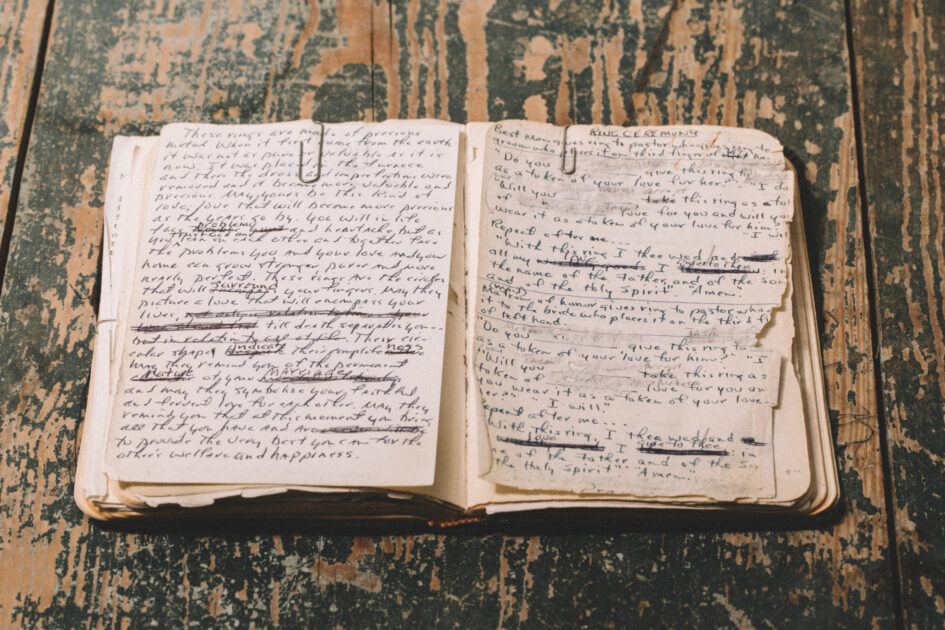 These rings are made of precious
metal. When it first came from the earth
it was not as pure or valuable as it is
now. It was placed in the furnace
and then the dross and imperfections were
removed and it became very valuable and
precious. May yours be this kind of
love, love that will become more precious
as the years go by. You will in life
face problems and heartache, but as
you lean on each other and together face
the problems you and your love and your
home can grow stronger, purer and more
nearly perfect. These rings are the circles
that will surround your fingers. May they
picture a love that will encompass your
lives,
till death separates you
but in relation to Their cir-
cular shape, indicate their completeness
may they remind you of the permanent
nature of your marriage
and may they symbolize your faithful
and fervent love for each other. May they
remind you that at this moment you bring
all that you have and are
to provide the very best you can for the
other's welfare and happiness.
RING CEREMONY
Best Man gives ring to pastor who gives ring to
groom who places it on third finger of left hand.
"Do you give this ring to
as a token of your love for her?" "I do
"Will you take this ring as a
of love for you and will you
wear it as a token of your love for him?
"I wi
Repeat after me...
"With this ring I thee wed and
all my love I give to thee: in
the name of the Father, and of the Son
and of the Holy Spirit" "Amen.
of honor gives ring to pastor who
it to the bride who places it on the third fi
of left hand.
"Do you give this ring to
as a token of your love for him?" "I
"Will take this ring as
token of love for you an
you wear it as a token of your love
er?" "I will"
epeat after me...
With this ring, I thee wed and
love I give to thee: in
me of the Father, and of the So
the Holy Spirit" "Amen.